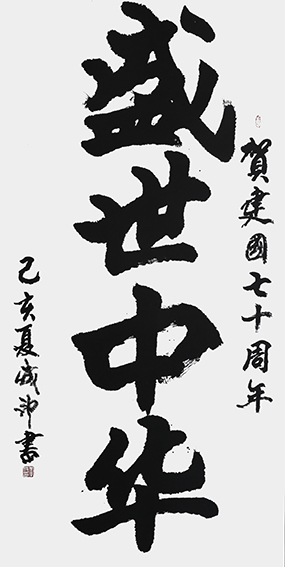 賀建國七十周年
盛世中华
己亥夏成沖書